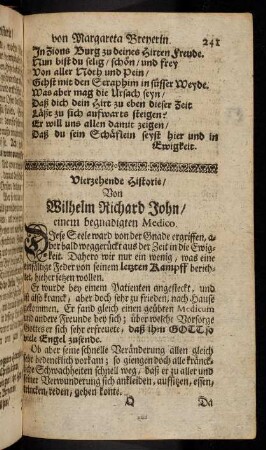 von Margareta Breyerin. 241
In Zions Burg zu deines Hirten Freude.
Nun bist du selig/ schön/ und frey
Von aller Noth und Pein/
Gehst mit den Seraphim in süsser Weyde.
Was aber mag die Ursach seyn/
Daß dich dein Hirt zu eben dieser Zeit
Läßt zu sich aufwarts steigen?
Er will uns allen damit zeigen/
Daß du sein Schäflein seyst hier und in
Ewigkeit.
Vierzehende Historie/
Von
Wilhelm Richard John/
einem begnadigten Medico.
Diese Seele ward von der Gnade ergriffen,
aber bald weggerückt aus der Zeit in die Ewig-
keit. Dahero wir nur ein wenig, was eine
einfältige Feder von seinem letzten Kampff berich-
tet, hersetzen wollen.
Er wurde bey einem Patienten angesteckt, und
ist also kranck, aber doch sehr zu frieden, nach Hause
gekommen. Er fand gleich einen geübten Medicum
und andere Freunde bey sich; über welche Vorsorge
Gottes er sich sehr erfreuete, daß ihm GOTT so
viele Engel zusende.
Ob aber seine schnelle Veränderung allen gleich
sehr bedencklich vorkam; so giengen doch alle kränck-
liche Schwachheiten schnell weg, daß er zu aller und
seiner Verwunderung sich ankleiden, aufsitzen, essen,
trincken, reden, gehen konte.
Q Da